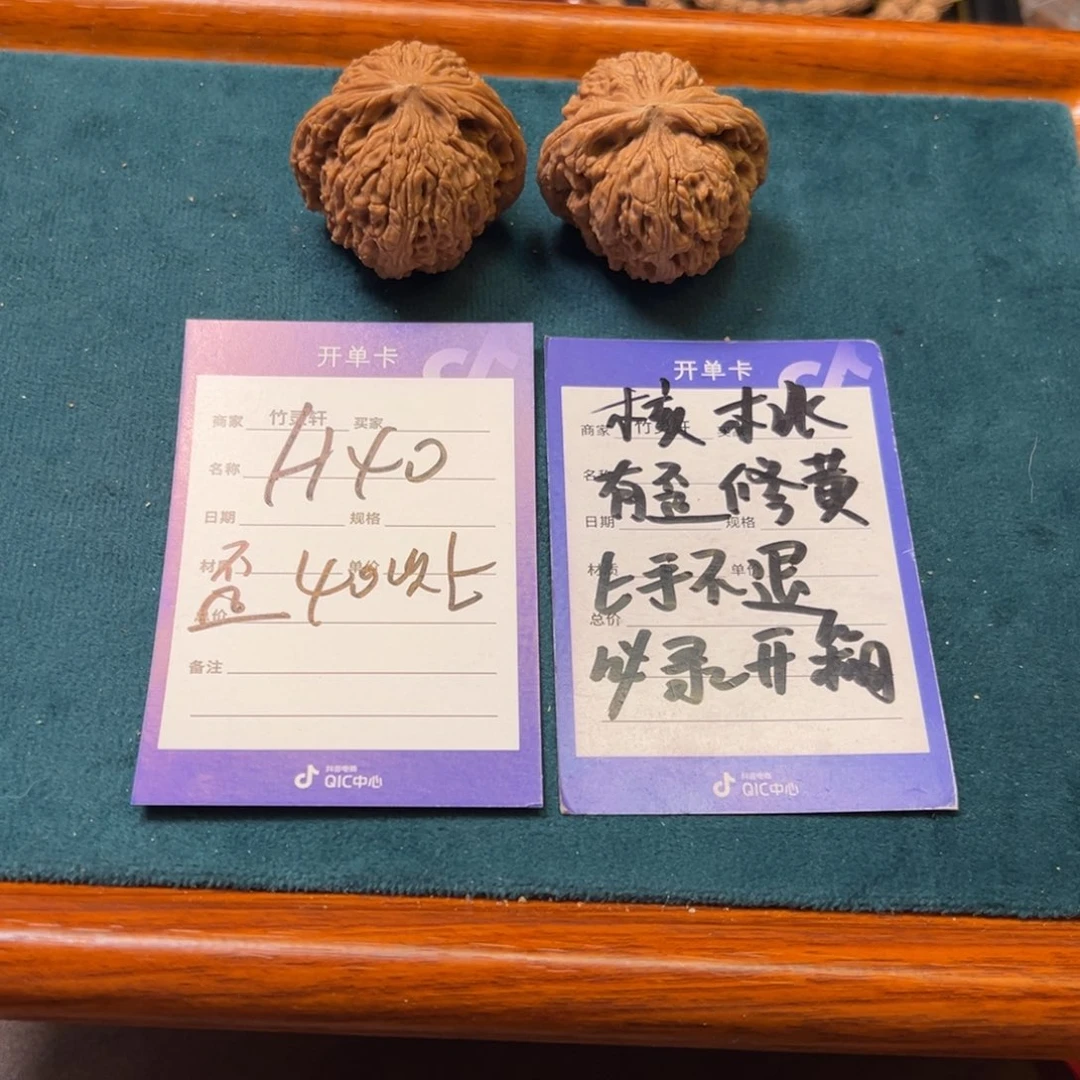 开单卡
商家 竹灵轩 买家
H40
名称
日期 规格
材质 单价
歪 40以上
总价
备注
抖音电商
QIC中心
开单卡
商家 竹灵轩
核桃
名称
有歪修黄
日期 规格
材质 单价
上手不退
总价
必录开箱
抖音电商
QIC中心